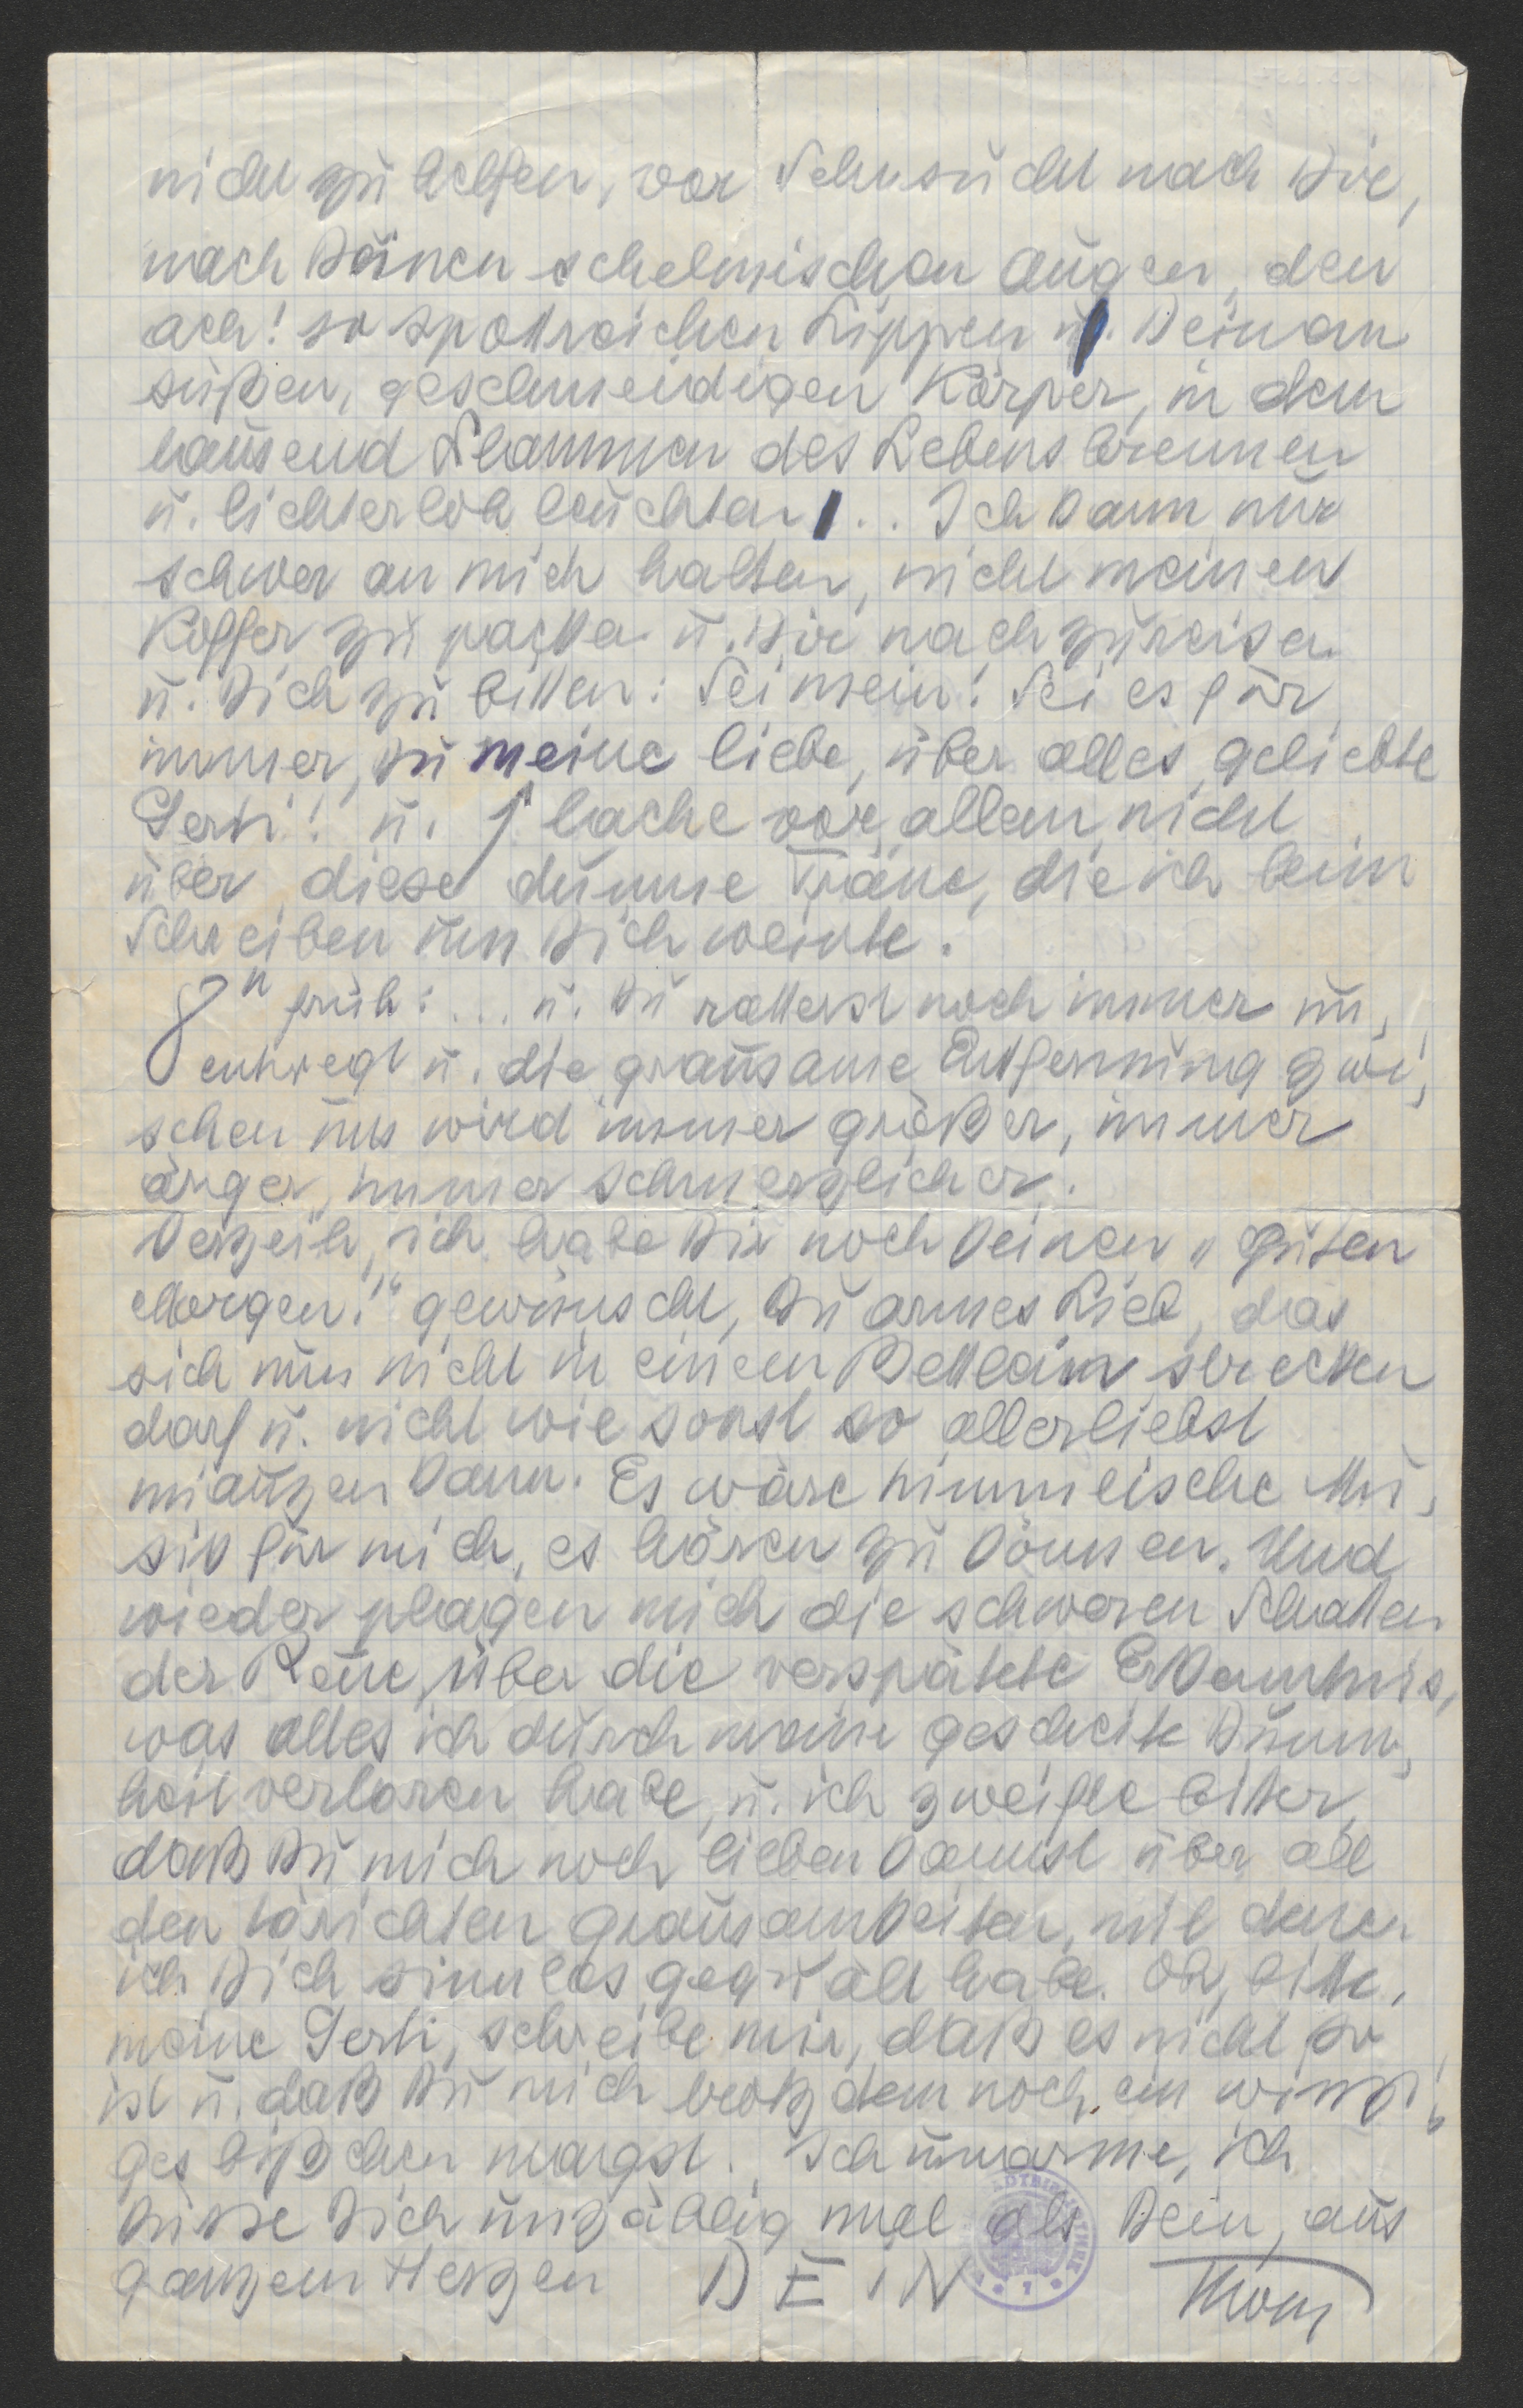 nicht zu helfen, vor Sehnsucht nach Dir,
nach Deinen schelmischen Augen, den
ach! so spottreichen Lippen u. Deinem
süßen, geschmeidigen Körper, in dem
tausend Flammen des Lebens brennen
u. lichterloh leuchten!.. Ich kann nur
schwer an mich halten, nicht meinen
Koffer zu packen u. Dir nachzureisen
u. Dich zu bitten: Sei mein! Sei es für
immer, Du meine liebe, über alles geliebte
Gerti! u. lache vor allem nicht
über diese dumme Träne, die ich beim
Schreiben um Dich weinte.
8h früh: ... u. Du ratterst noch immer un,
entwegt u. die grausame Entfernung zwi,
schen uns wird immer größer, immer
ärger, immer schmerzlicher.
Verzeih, ich habe Dir noch keinen „Guten
Morgen!" gewünscht, Du armes Lieb, das
sich nun nicht in einem Bettlein strecken
darf u. nicht wie sonst so allerliebst
miauzen kann. Es wäre himmlische Mu,
sik für mich, es hören zu können. Und
wieder plagen mich die schweren Schatten
der Reue, über die verspätete Erkenntnis,
was alles ich durch meine gescheite Dumm,
heit verloren habe, u. ich zweifle bitter,
daß Du mich noch lieben kannst über all
den törichten Grausamkeiten, mit denen
ich Dich sinnlos gequält habe. Oh, bitte,
meine Gerti, schreibe mir, daß es nicht so
ist u. daß Du mich trotzdem noch ein winzi,
ges bißchen magst. Ich umarme, ich
küsse Dich unzählig mal als Dein, aus
ganzem Herzen DEIN